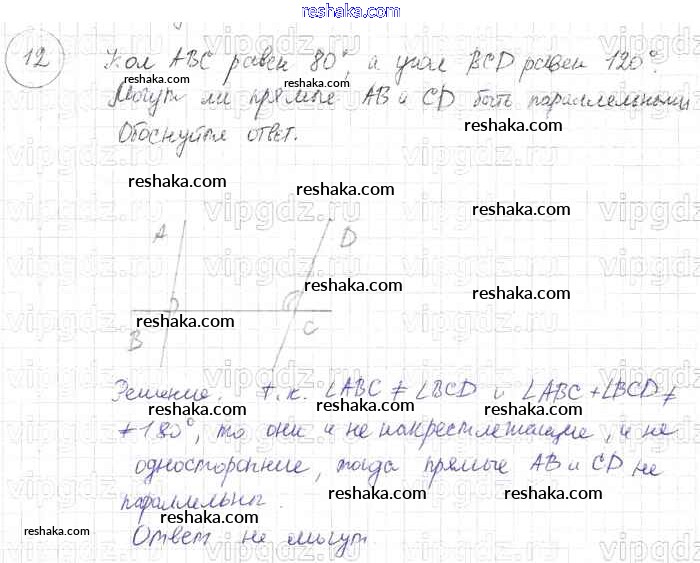 reshaka.com
12 Угол ABC равен 80°, а угол BCD равен 120°.
reshaka.com reshaka.com
Могут ли прямые AB и CD быть параллельными
reshaka.com
Обоснуйте ответ.
reshaka.com
vipgdz.ru vipgdz.ru vipgdz.ru
reshaka.com
reshaka.com
A D
reshaka.com
reshaka.com
B C
Решение. т.к. ∠ABC ≠ ∠BCD и ∠ABC + ∠BCD ≠
reshaka.com reshaka.com
≠ 180°, то они и не накрестлежащие, и не
reshaka.com
односторонние, тогда прямые AB и CD не
reshaka.com
параллельны.
reshaka.com reshaka.com
reshaka.com
Ответ не могут